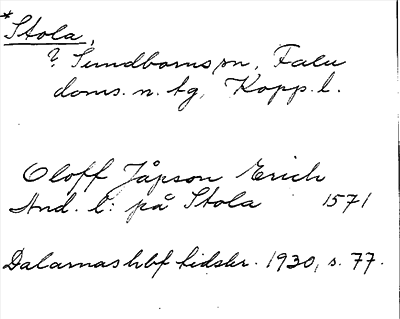 *Stola,
? Sundborns sn, Falu
doms. n. tg, Kopp. l.
Oloff Jåpson Erich
And. l: på Stola 1571
Dalarnas hbf tidskr. 1930, s. 77.